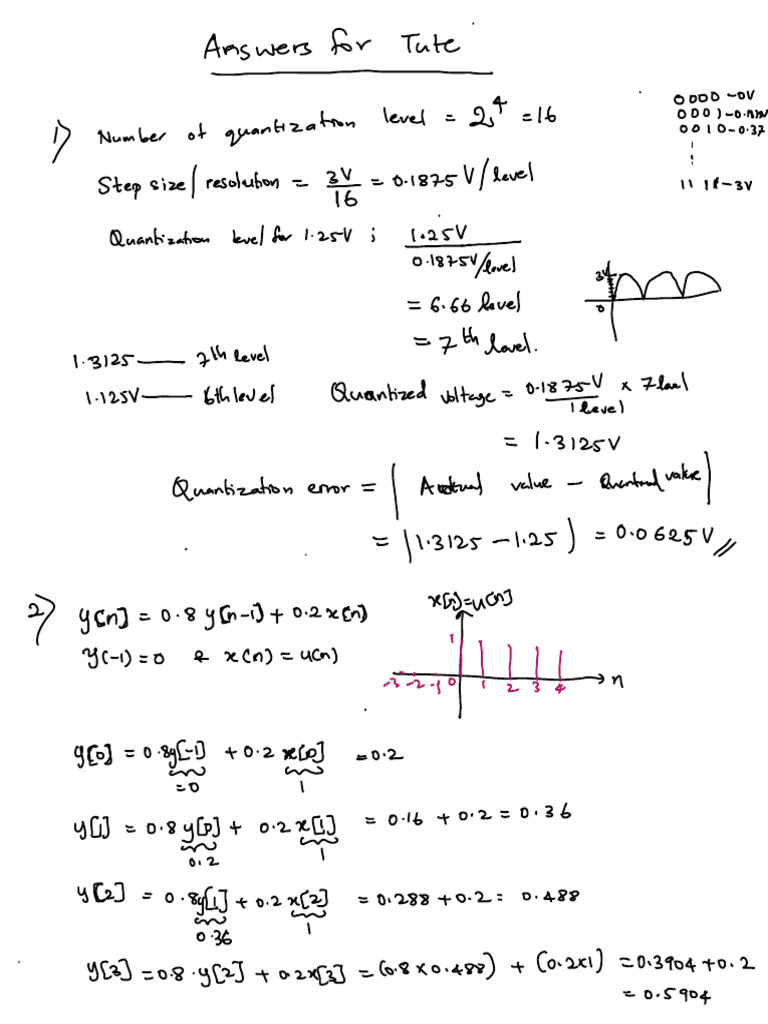 Answers for Tute
0000 - 0V
0001 - 0.1875V
0010 - 0.37
1111 - 3V
1) Number of quantization level = 2^4 = 16
Step size/resolution = 3V/16 = 0.1875 V/level
Quantization level for 1.25V ; 1.25V / 0.1875V/level
= 6.66 level
= 7th level.
3V
0
1.3125 —— 7th level
1.125V —— 6th level
Quantized voltage = 0.1875V/1 level × 7 level
= 1.3125V
Quantization error = | Actual value - Quantized value |
= |1.3125 - 1.25| = 0.0625V //
2) y[n] = 0.8 y[n-1] + 0.2 x[n]
y(-1) = 0 & x(n) = u(n)
x[n] = u[n]
1
-3 -2 -1 0 1 2 3 4 n
y[0] = 0.8y[-1] + 0.2 x[0] = 0.2
=0 1
y[1] = 0.8 y[0] + 0.2 x[1] = 0.16 + 0.2 = 0.36
0.2 1
y[2] = 0.8y[1] + 0.2 x[2] = 0.288 + 0.2 = 0.488
0.36 1
y[3] = 0.8 . y[2] + 0.2x[3] = (0.8 x 0.488) + (0.2x1) = 0.3904 + 0.2
= 0.5904